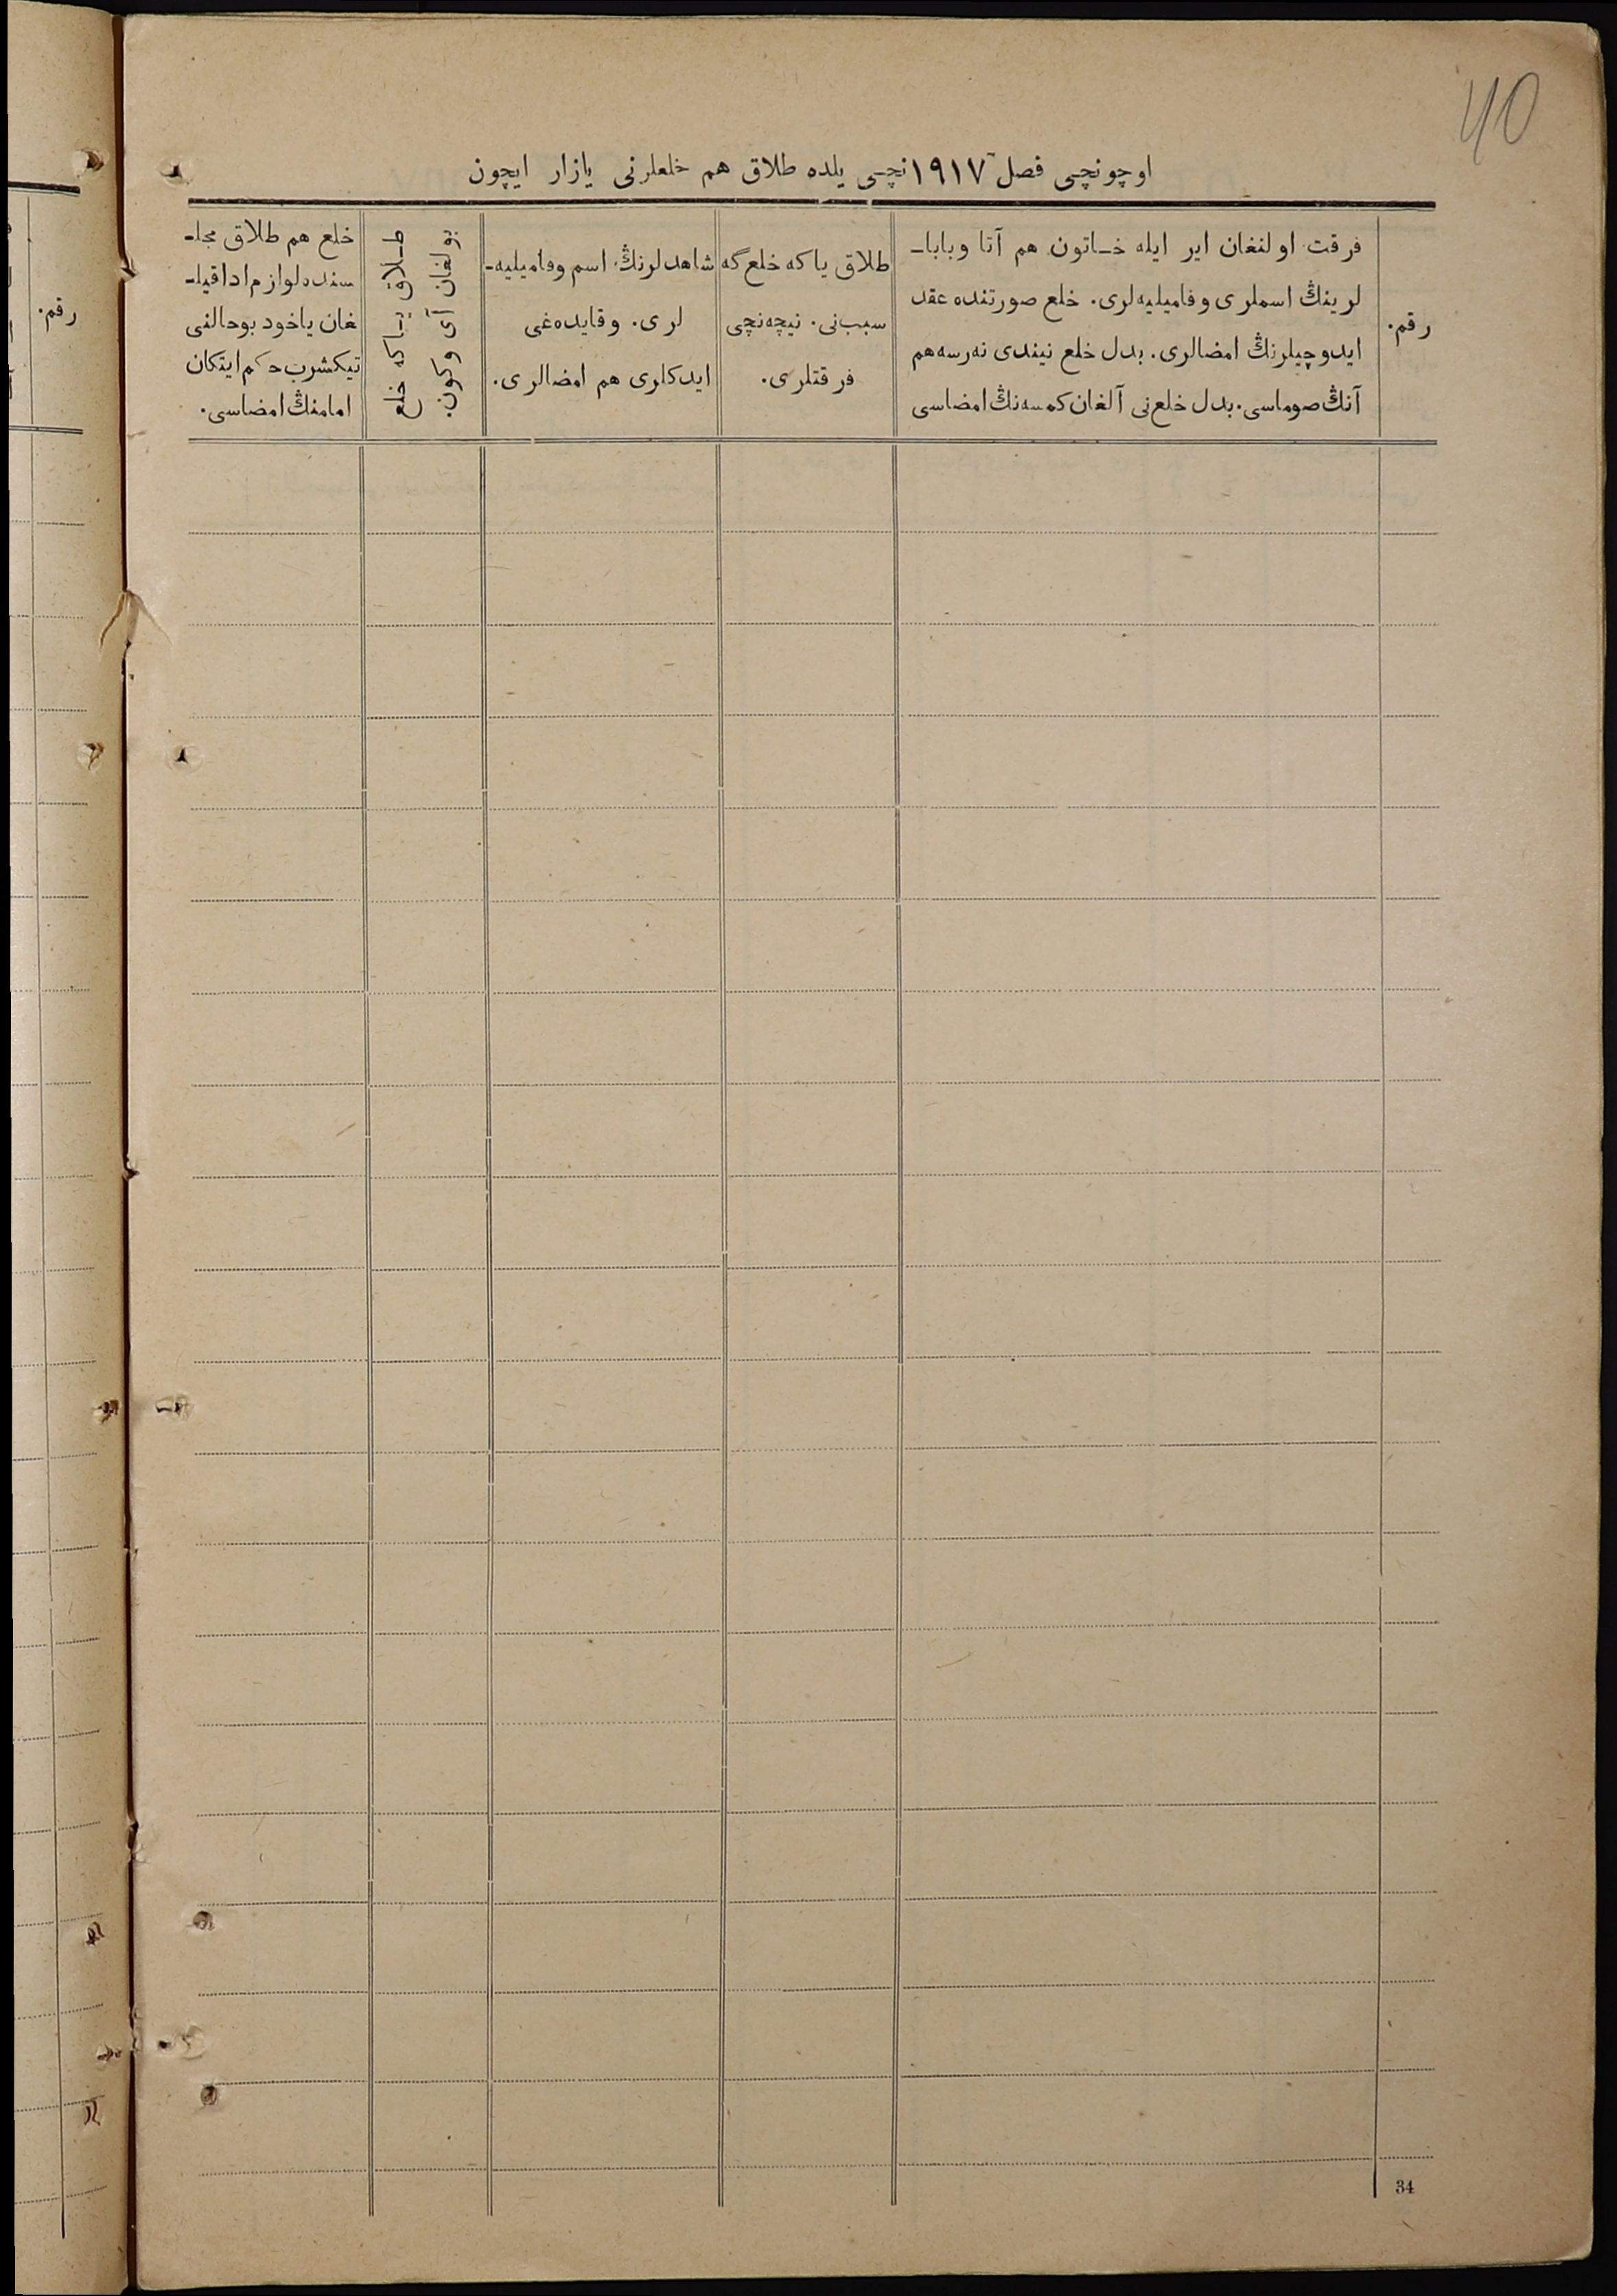 40
اوچونچی فصل ۱۹۱۷ نچی یلده طلاق هم خلعلرنی یازار ایچون
رقم.
فرقت اولنغان ایر ایله خـاتون هم آتا وبابا۔
لرینڭ اسملری وفامیلیه‌لری. خلع صورتنده عقد
ایدوچیلرنڭ امضالری. بدل خلع نیندی نه‌رسه هم
آنڭ صوماسی. بدل خلع نی آلغان کمسه‌نڭ امضاسی
طلاق یاکه خلع گه
سبب نی. نیچه‌نچی
فرقتلری.
شاهدلرنڭ اسم وفامیلیه۔
لری. وقایده‌غی
ایدکلری هم امضالری.
طـلاق یـاکه خلع
بولغان آی وکون.
خلع هم طلاق مجلـ
سنده لوازم ادا قیلـ
غان یاخود بوحالنی
تیکشرب حکم ایتکان
امامنڭ امضاسی.
34
رقم.